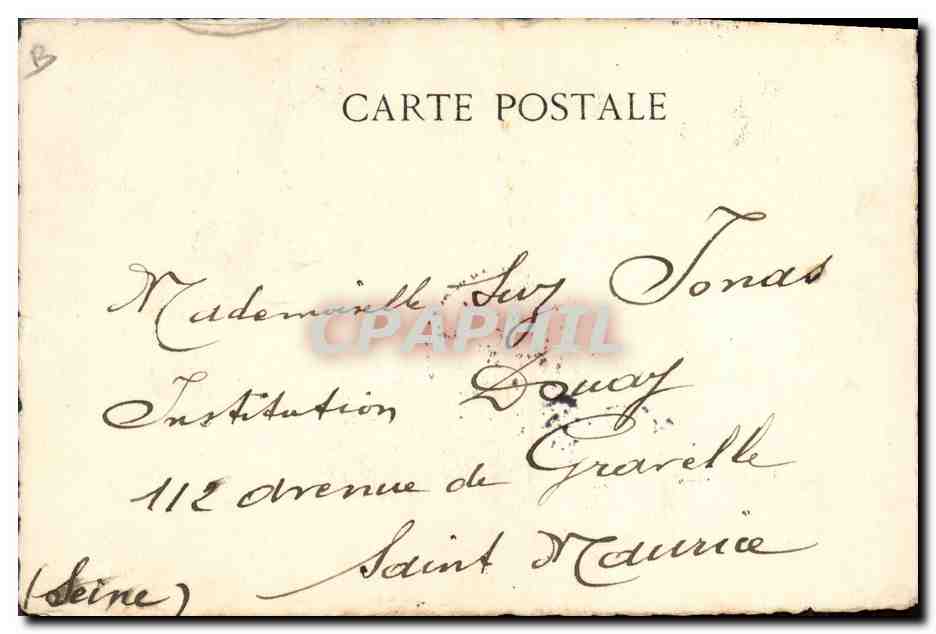 B
CARTE POSTALE
Mademoiselle Suzy Jonas
CPAPHIL
Institution Douay
112 avenue de Gravelle
Saint Maurice
(Seine)